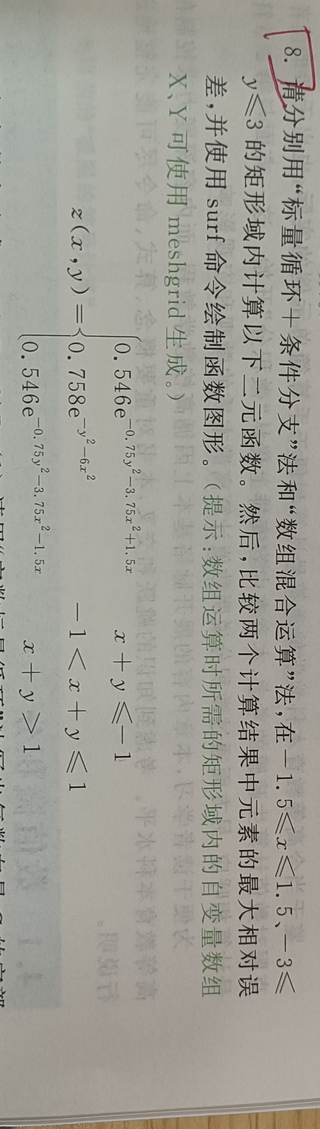 8. 请分别用“标量循环+条件分支”法和“数组混合运算”法,在-1.5≤x≤1.5、-3≤
y≤3 的矩形域内计算以下二元函数。然后,比较两个计算结果中元素的最大相对误
差,并使用 surf 命令绘制函数图形。(提示:数组运算时所需的矩形域内的自变量数组
X、Y 可使用 meshgrid 生成。)
0.546e^{-0.75y²-3.75x²+1.5x} x+y≤-1
z(x,y)={0.758e^{-y²-6x²} -1<x+y≤1
0.546e^{-0.75y²-3.75x²-1.5x} x+y>1